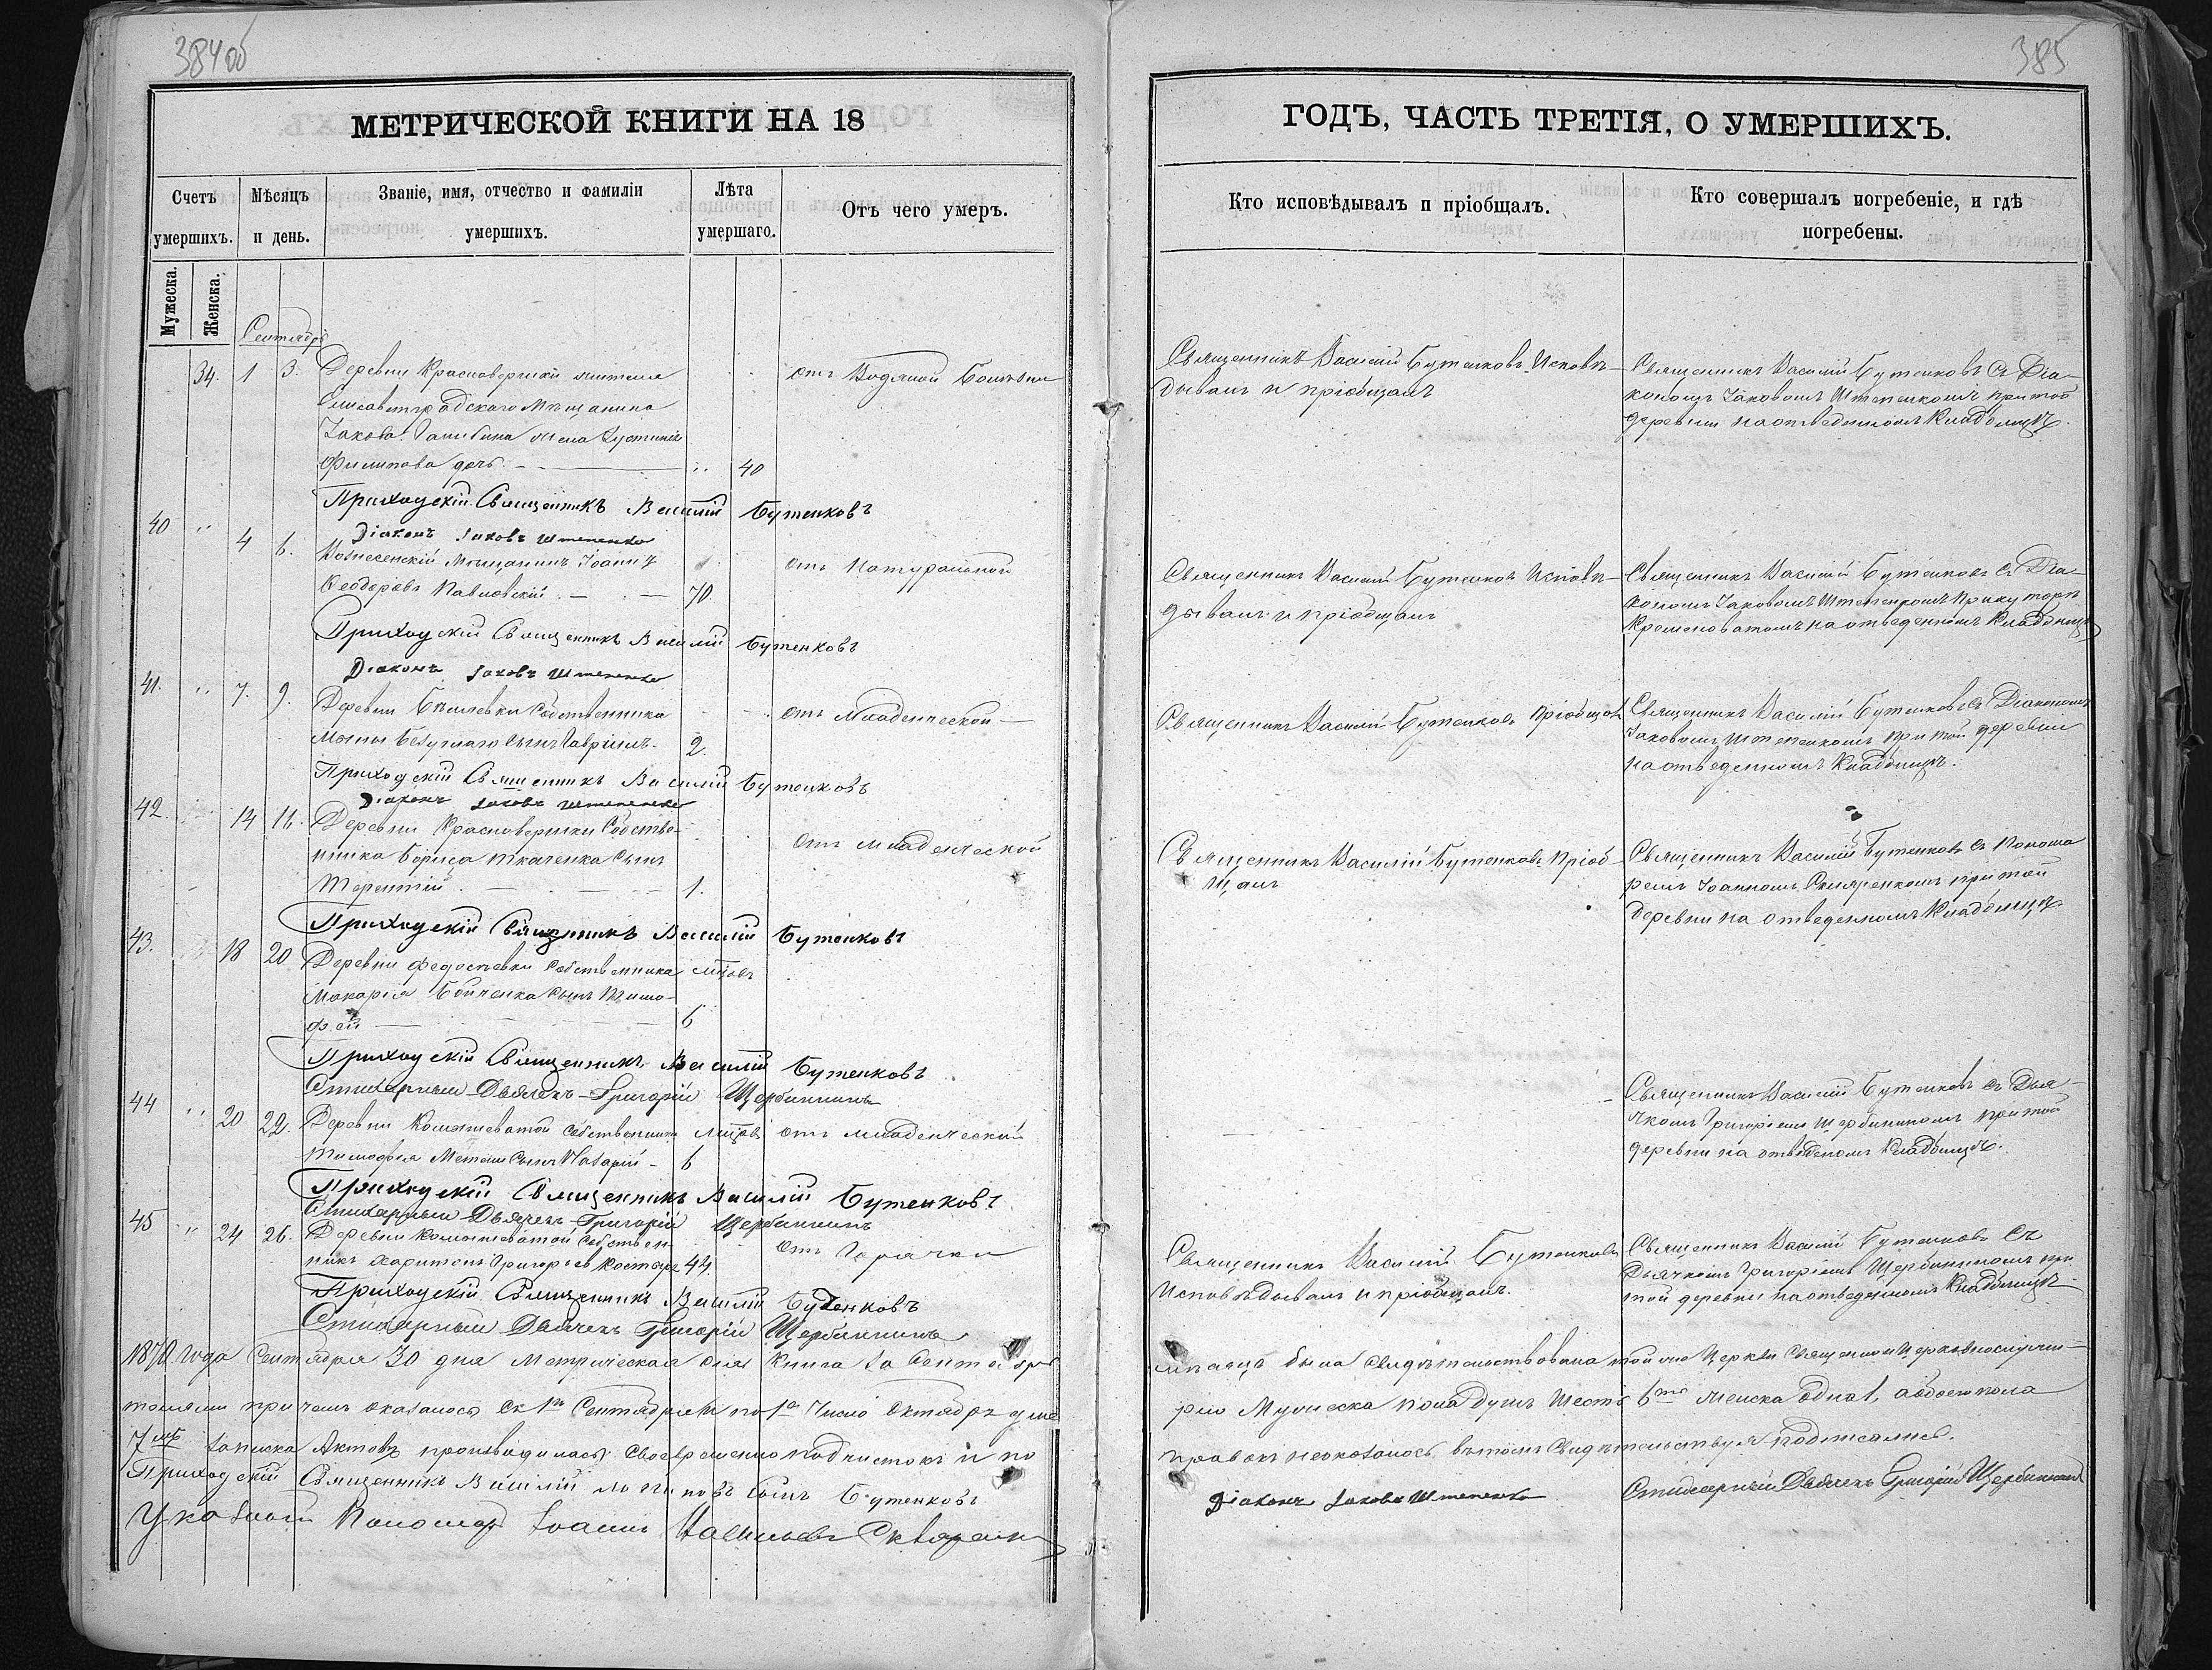 384об
385
МЕТРИЧЕСКОЙ КНИГИ НА 18
ГОДЪ, ЧАСТЬ ТРЕТІЯ, О УМЕРШИХЪ.
Счетъ умершихъ.
Мѣсяцъ и день.
Званіе, имя, отчество и фамиліи умершихъ.
Лѣта умершаго.
Отъ чего умеръ.
Кто исповѣдывалъ и пріобщалъ.
Кто совершалъ погребеніе, и гдѣ погребены.
Мужеска.
Женска.
Сентябрь
34. 1 3. Деревни Красновершки жителя
Елисаветградскаго Мѣщанина
Іакова жена Іустинія
Филипова дочь. 40
отъ Водяной Болѣзни
Священникъ Василій Бутенковъ Исповѣ-
дывалъ и пріобщалъ
Священникъ Василій Бутенковъ съ Діа-
кономъ Іаковомъ Штепенкомъ при той
деревни на отведенномъ Кладбищѣ.
Приходскій Священникъ Василій Бутенковъ
Діаконъ Іаковъ Штепенко
40 " 4 6. Вознесенскій Мѣщанинъ Іоаннъ
Феодоровъ Павловскій. 70.
отъ Натуральной
Священникъ Василій Бутенковъ Исповѣ-
дывалъ и пріобщалъ
Священникъ Василій Бутенковъ съ Діа-
кономъ Іаковомъ Штепенкомъ при хуторѣ
на отведенномъ Кладбищѣ
Приходскій Священникъ Василій Бутенковъ
Діаконъ Іаковъ Штепенко
41. " 7. 9. Деревни Собственника
сынъ Гавріилъ. 2.
отъ Младенческой
Священникъ Василій Бутенковъ Пріобщалъ
Священникъ Василій Бутенковъ съ Діакономъ
Іаковомъ Штепенкомъ при той деревни
на отведенномъ Кладбищѣ.
Приходскій Священникъ Василій Бутенковъ
Діаконъ Іаковъ Штепенко
42. 14 16. Деревни Красновершки Собстве-
нника Бориса Ткаченка сынъ
Терентій. 1.
отъ Младенческой
Священникъ Василій Бутенковъ Пріоб-
щалъ
Священникъ Василій Бутенковъ съ Понома
ремъ Іоанномъ при той
деревни на отведенномъ Кладбищѣ
Приходскій Священникъ Василій Бутенковъ
43. 18 20 Деревни Федосѣевки Собственника мѣцовъ
Макарія Бойченка сынъ Тимо-
фей 6
Приходскій Священникъ Василій Бутенковъ
Стихарный Дьячекъ Григорій Щербининъ
44 " 20 22. Деревни Камышеватой Собственника мѣцовъ отъ младенческой
Тимофея сынъ Назарій 6
Священникъ Василій Бутенковъ съ Дья-
чкомъ Григоріемъ Щербининомъ при той
деревни на отведеномъ Кладбищѣ.
Приходскій Священникъ Василій Бутенковъ
Стихарный Дьячекъ Григорій Щербининъ
45 " 24 26. Деревни Камышеватой Собствен-
никъ Харитонъ Григорьевъ 44.
отъ Горячки
Священникъ Василій Бутенковъ
Исповѣдывалъ и пріобщалъ.
Священникъ Василій Бутенковъ съ
Дьячкомъ Григоріемъ Щербининомъ при
той деревни на отведенномъ Кладбищѣ
Приходскій Священникъ Василій Бутенковъ
Стихарный Дьячекъ Григорій Щербининъ
1870 года Сентября 30 дня Метрическая сія Книга за Сентябрь мѣсяцъ была свидѣтельствована той же Церкви Священноцерковнослужи-
телями при чемъ оказалось съ 1го Сентября по 1е Число Октября уме рло Мужеска пола Душъ Шесть 6ть женска одна 1, обоего пола
7мь записка Актовъ производилась своевременно подчистокъ и по правокъ неоказалось въ томъ свидѣтельствуя подписались.
Приходскій Священникъ Василій Логиновъ сынъ Бутенковъ
Діаконъ Іаковъ Штепенко
Стихарный Дьячекъ Григорій Щербининъ
Указной Пономарь Іоаннъ Васильевъ